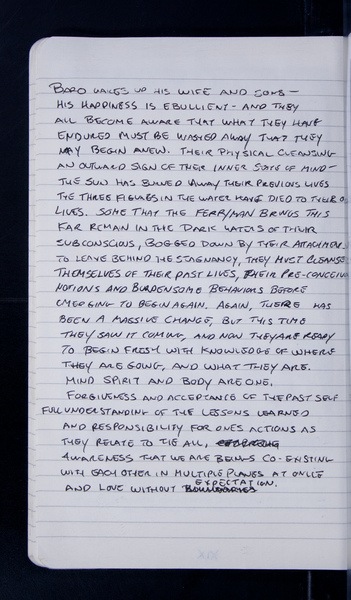 BODO WAKES UP HIS WIFE AND SONS –
HIS HAPPINESS IS EBULLIENT – AND THEY
ALL BECOME AWARE THAT WHAT THEY HAVE
ENDURED MUST BE WASHED AWAY THAT THEY
MAY BEGIN ANEW. THEIR PHYSICAL CLEANSING
AN OUTWARD SIGN OF THEIR INNER STATE OF MIND –
THE SUN HAS BURNED AWAY THEIR PREVIOUS LIVES
THE THREE FIGURES IN THE WATER HAVE DIED TO THEIR O
LIVES. SOME THAT THE FERRYMAN BRINGS THIS
FAR REMAIN IN THE DARK WATERS OF THEIR
SUBCONSCIOUS, BOGGED DOWN BY THEIR ATTACHMEN
TO LEAVE BEHIND THE STAGNANCY, THEY MUST CLEANSE
THEMSELVES OF THEIR PAST LIVES, THEIR PRE-CONCEIV
NOTIONS AND BURDENSOME BEHAVIORS BEFORE
EMERGING TO BEGIN AGAIN. AGAIN, THERE HAS
BEEN A MASSIVE CHANGE, BUT THIS TIME
THEY SAW IT COMING, AND NOW THEY ARE READY
TO BEGIN FRESH WITH KNOWLEDGE OF WHERE
THEY ARE GOING, AND WHAT THEY ARE.
MIND SPIRIT AND BODY ARE ONE.
FORGIVENESS AND ACCEPTANCE OF THE PAST SELF
FULL UNDERSTANDING OF THE LESSONS LEARNED
AND RESPONSIBILITY FOR ONES ACTIONS AS
THEY RELATE TO THE ALL,
AWARENESS THAT WE ARE BEINGS CO-EXISTING
WITH EACH OTHER IN MULTIPLE PLANES AT ONCE
EXPECTATION.
AND LOVE WITHOUT BOUNDARIES